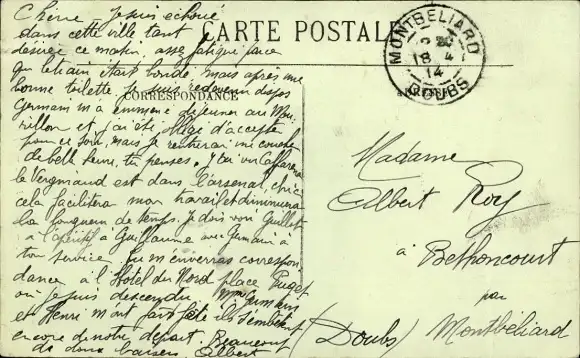 CARTE POSTALE
CORRESPONDANCE
MONTBELIARD
18 -4
14
DOUBS
Chérie, Je suis échoué
dans cette ville tant
désirée ce matin, assez fatigué parce
que le train était bondé, mais après une
bonne toilette, je suis redevenu dispos
Germain m'a emmené déjeuner au Mou-
rillon et j'ai été obligé d'accepter
pour ce soir, mais je rentrerai me coucher
de belle heure, tu penses. J'ai vu
le Vergniaud est dans l'arsenal,
cela facilitera mon travail et diminuera
la longueur du temps. Je dois voir Guillot
à l'apéritif à Guillaume avec Germain à
ton service. Tu m'enverras correspon-
dance à l'Hôtel du Nord place Puget
où je suis descendu. Mme Germain
et Henri m'ont fait fête ils
encore de notre départ. Beaucoup
de doux baisers Albert
Madame
Albert Roy
à Bethoncourt
par
Montbéliard
(Doubs)